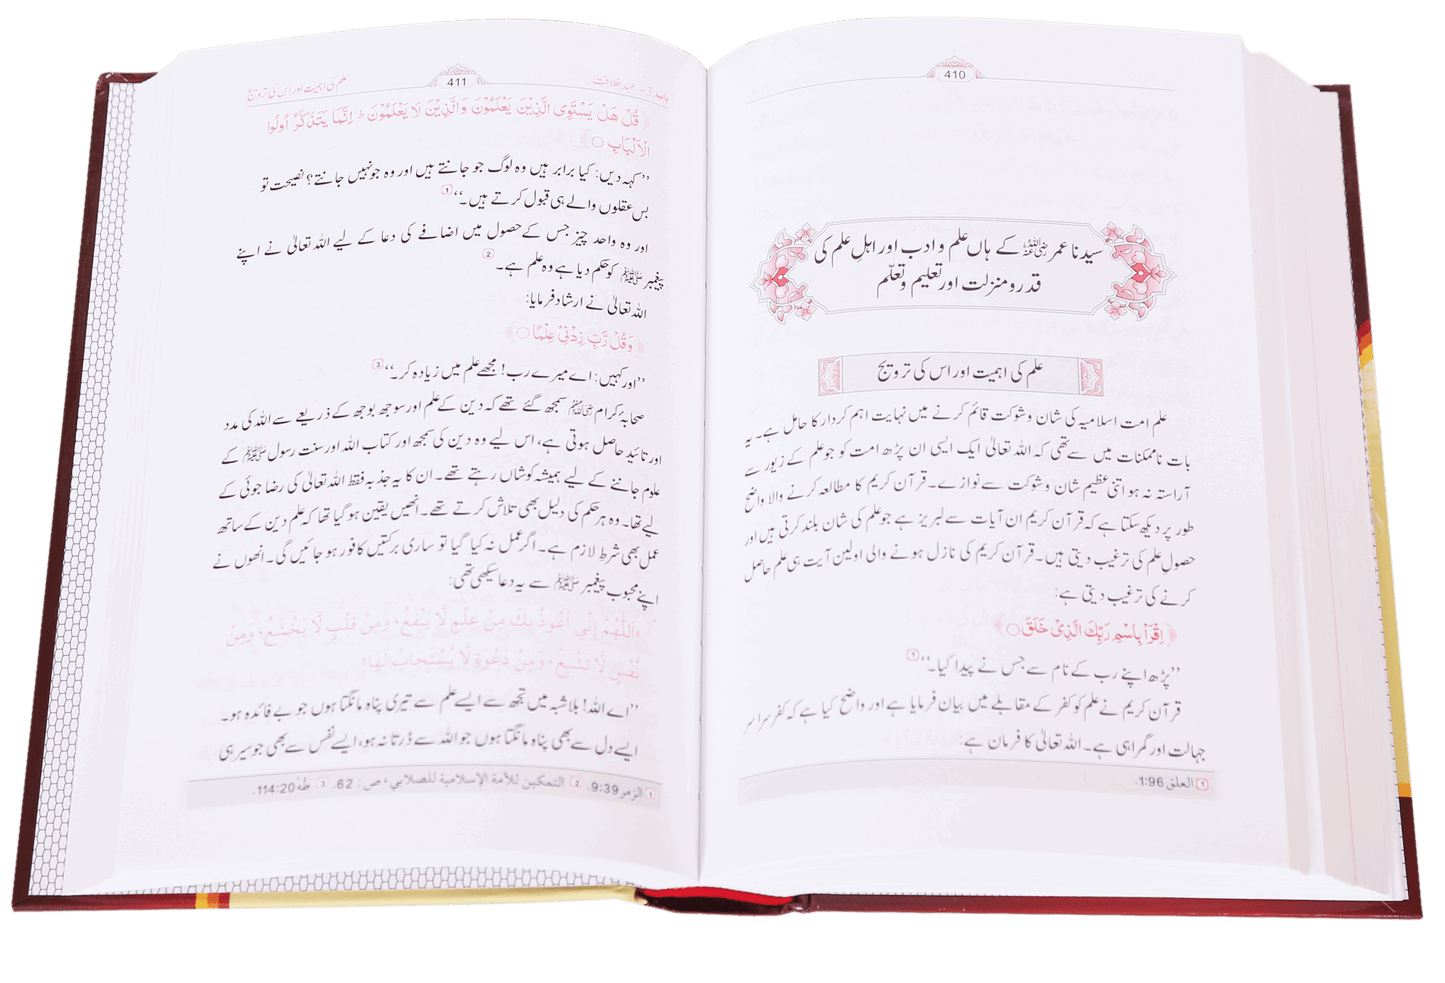 410
سیدنا عمر رضی اللہ عنہ کے ہاں علم و ادب اور اہلِ علم کی
قدر و منزلت اور تعلیم و تعلّم
علم کی اہمیت اور اس کی ترویج
علم امت اسلامیہ کی شان و شوکت قائم کرنے میں نہایت اہم کردار کا حامل ہے۔ یہ
بات ناممکنات میں سے تھی کہ اللہ تعالیٰ ایک ایسی ان پڑھ امت کو جو علم کے زیور سے
آراستہ نہ ہو اتنی عظیم شان و شوکت سے نوازے۔ قرآن کریم کا مطالعہ کرنے والا واضح
طور پر دیکھ سکتا ہے کہ قرآن کریم ان آیات سے لبریز ہے جو علم کی شان بلند کرتی ہیں اور
حصولِ علم کی ترغیب دیتی ہیں۔ قرآن کریم کی نازل ہونے والی اولین آیت ہی علم حاصل
کرنے کی ترغیب دیتی ہے:
﴿اِقْرَاْ بِاسْمِ رَبِّكَ الَّذِیْ خَلَقَ ○﴾
’’پڑھ اپنے رب کے نام سے جس نے پیدا کیا۔‘‘ 1
قرآن کریم نے علم کو کفر کے مقابلے میں بیان فرمایا ہے اور واضح کیا ہے کہ کفر سراسر
جہالت اور گمراہی ہے۔ اللہ تعالیٰ کا فرمان ہے:
1 العلق 1:96.
باب:3 - عہد خلافت 411 علم کی اہمیت اور اس کی ترویج
﴿قُلْ هَلْ یَسْتَوِی الَّذِیْنَ یَعْلَمُوْنَ وَالَّذِیْنَ لَا یَعْلَمُوْنَ ؕ اِنَّمَا یَتَذَكَّرُ اُولُوا
الْاَلْبَابِ ○﴾
’’کہہ دیں: کیا برابر ہیں وہ لوگ جو جانتے ہیں اور وہ جو نہیں جانتے؟ نصیحت تو
بس عقلوں والے ہی قبول کرتے ہیں۔‘‘ 1
اور وہ واحد چیز جس کے حصول میں اضافے کی دعا کے لیے اللہ تعالیٰ نے اپنے
پیغمبر ﷺ کو حکم دیا ہے وہ علم ہے۔ 2
اللہ تعالیٰ نے ارشاد فرمایا:
﴿وَقُلْ رَّبِّ زِدْنِیْ عِلْمًا ○﴾
’’اور کہیں: اے میرے رب! مجھے علم میں زیادہ کر۔‘‘ 3
صحابۂ کرام رضی اللہ عنہم سمجھ گئے تھے کہ دین کے علم اور سوجھ بوجھ کے ذریعے سے اللہ کی مدد
اور تائید حاصل ہوتی ہے، اس لیے وہ دین کی سمجھ اور کتاب اللہ اور سنت رسول ﷺ کے
علوم جاننے کے لیے ہمیشہ کوشاں رہتے تھے۔ ان کا یہ جذبہ فقط اللہ تعالیٰ کی رضا جوئی کے
لیے تھا۔ وہ ہر حکم کی دلیل بھی تلاش کرتے تھے۔ انھیں یقین ہو گیا تھا کہ علم دین کے ساتھ
عمل بھی شرط لازم ہے۔ اگر عمل نہ کیا گیا تو ساری برکتیں کافور ہو جائیں گی۔ انھوں نے
اپنے محبوب پیغمبر ﷺ سے یہ دعا سیکھی تھی:
«اَللّٰهُمَّ اِنِّي اَعُوْذُ بِكَ مِنْ عِلْمٍ لَّا يَنْفَعُ، وَمِنْ قَلْبٍ لَّا يَخْشَعُ، وَمِنْ
نَّفْسٍ لَّا تَشْبَعُ، وَمِنْ دَعْوَةٍ لَّا يُسْتَجَابُ لَهَا»
’’اے اللہ! بلاشبہ میں تجھ سے ایسے علم سے تیری پناہ مانگتا ہوں جو بے فائدہ ہو۔
ایسے دل سے بھی پناہ مانگتا ہوں جو اللہ سے ڈرتا نہ ہو، ایسے نفس سے بھی جو سیر ہی
1 الزمر 9:39. 2 التمكين للأمة الإسلامية للصلابي، ص: 62. 3 طه 114:20.